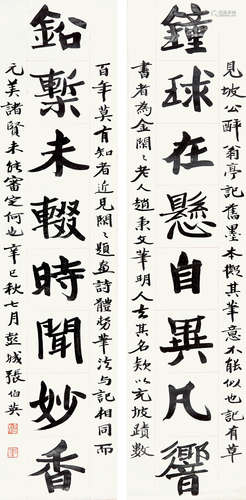 鐘球在懸自異凡響
見坡公醉翁亭記舊墨本擬其筆意不能似記有草
書者為金閑〻老人趙秉文筆明人去其名款以充坡蹟數
鉛槧未輟時聞妙香
百年莫有知者近見閑〻題畫詩體勢筆法与記相同而
元美諸賢未能審定何也辛巳秋七月彭城張伯英